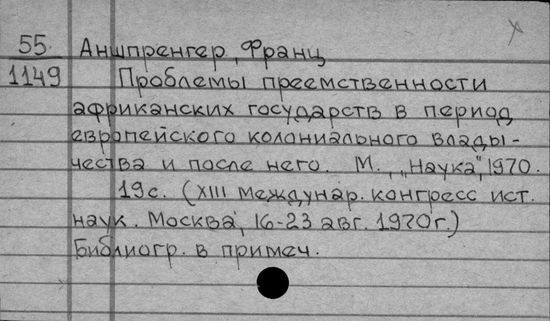 55 Аншпренгер, Франц
1149 Проблемы преемственности
африканских государств в период
европейского колониального влады-
чества и после него. М., „Наука", 1970.
19с. (XIII междунар. конгресс ист.
наук. Москва, 16-23 авг. 1970г.)
Библиогр. в примеч.